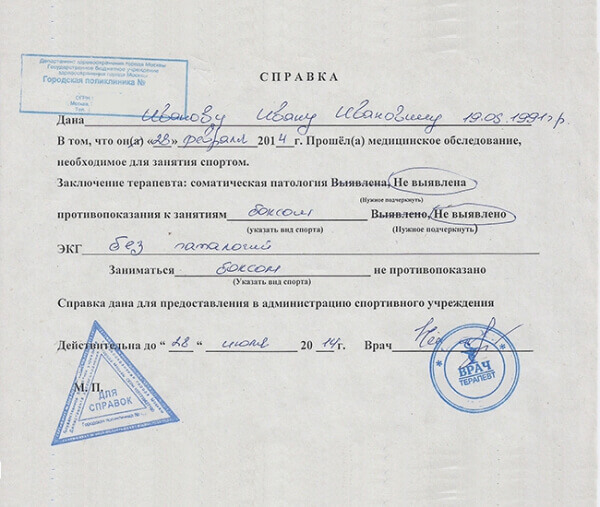 Департамент здравоохранения города Москвы
Государственное бюджетное учреждение
здравоохранения города Москвы
Городская поликлиника №
ОГРН
Москва
Тел.
СПРАВКА
Дана Иванову Ивану Ивановичу 19.05.1991г.р.
В том, что он(а) «28» февраля 2014 г. Прошёл(а) медицинское обследование,
необходимое для занятия спортом.
Заключение терапевта: соматическая патология Выявлена, Не выявлена
(Нужное подчеркнуть)
противопоказания к занятиям боксом Выявлено, Не выявлено
(указать вид спорта) (Нужное подчеркнуть)
ЭКГ без патологий
Заниматься боксом не противопоказано
(Указать вид спорта)
Справка дана для предоставления в администрацию спортивного учреждения
Действительна до "28" июля 2014г. Врач
М. П.
ДЛЯ
СПРАВОК
Городская поликлиника №
ВРАЧ
ТЕРАПЕВТ